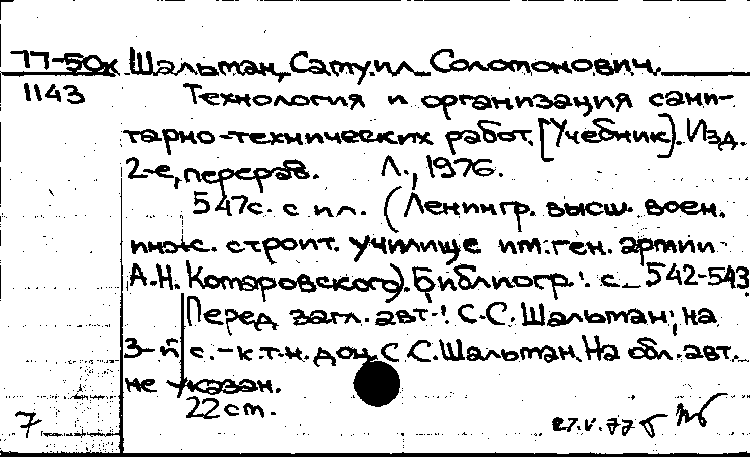 77-50к Шальман, Самуил Соломонович.
1143 Технология и организация сани-
тарно-технических работ. [Учебник]. Изд.
2-е, перераб. Л., 1976.
547с. с ил. (Ленингр. высш. воен.
инж. строит. училище им. ген. армии
А.Н. Комаровского). Библиогр.: с. 542-543
Перед загл. авт.: С.С. Шальман; на
3-й с. - к.т.н. доц. С.С. Шальман. На обл. авт.
не указан.
22 cm.
7 27.V.77